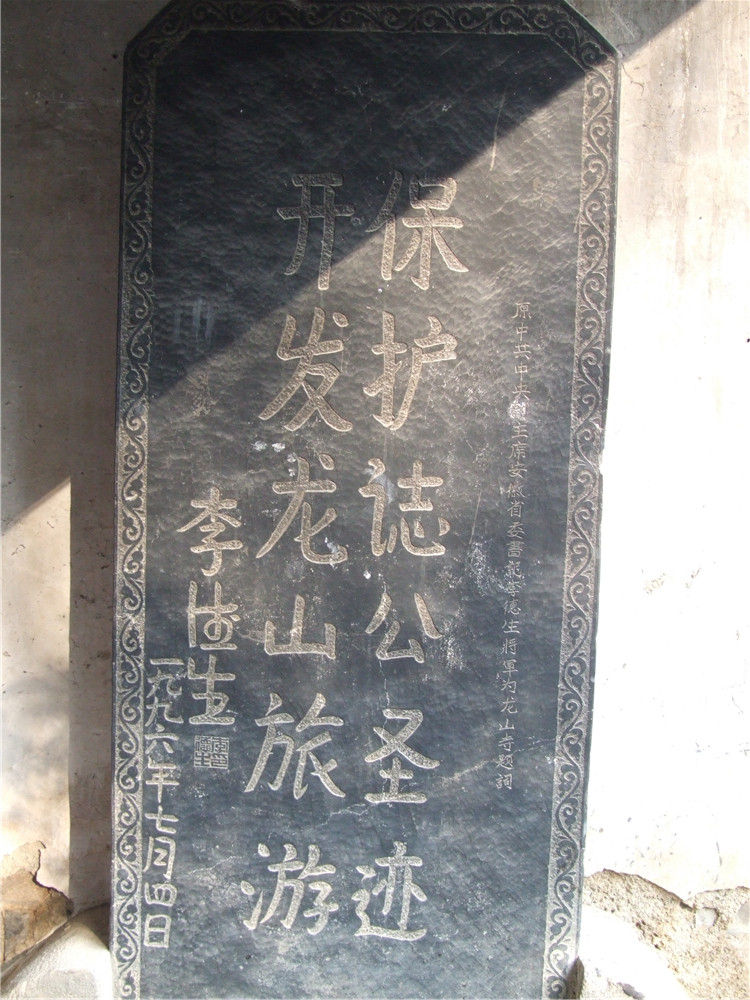 原中共中央副主席安徽省委書記李德生將軍为龙山寺题詞
保护誌公圣迹
开发龙山旅游
李德生
一九九六年七月四日